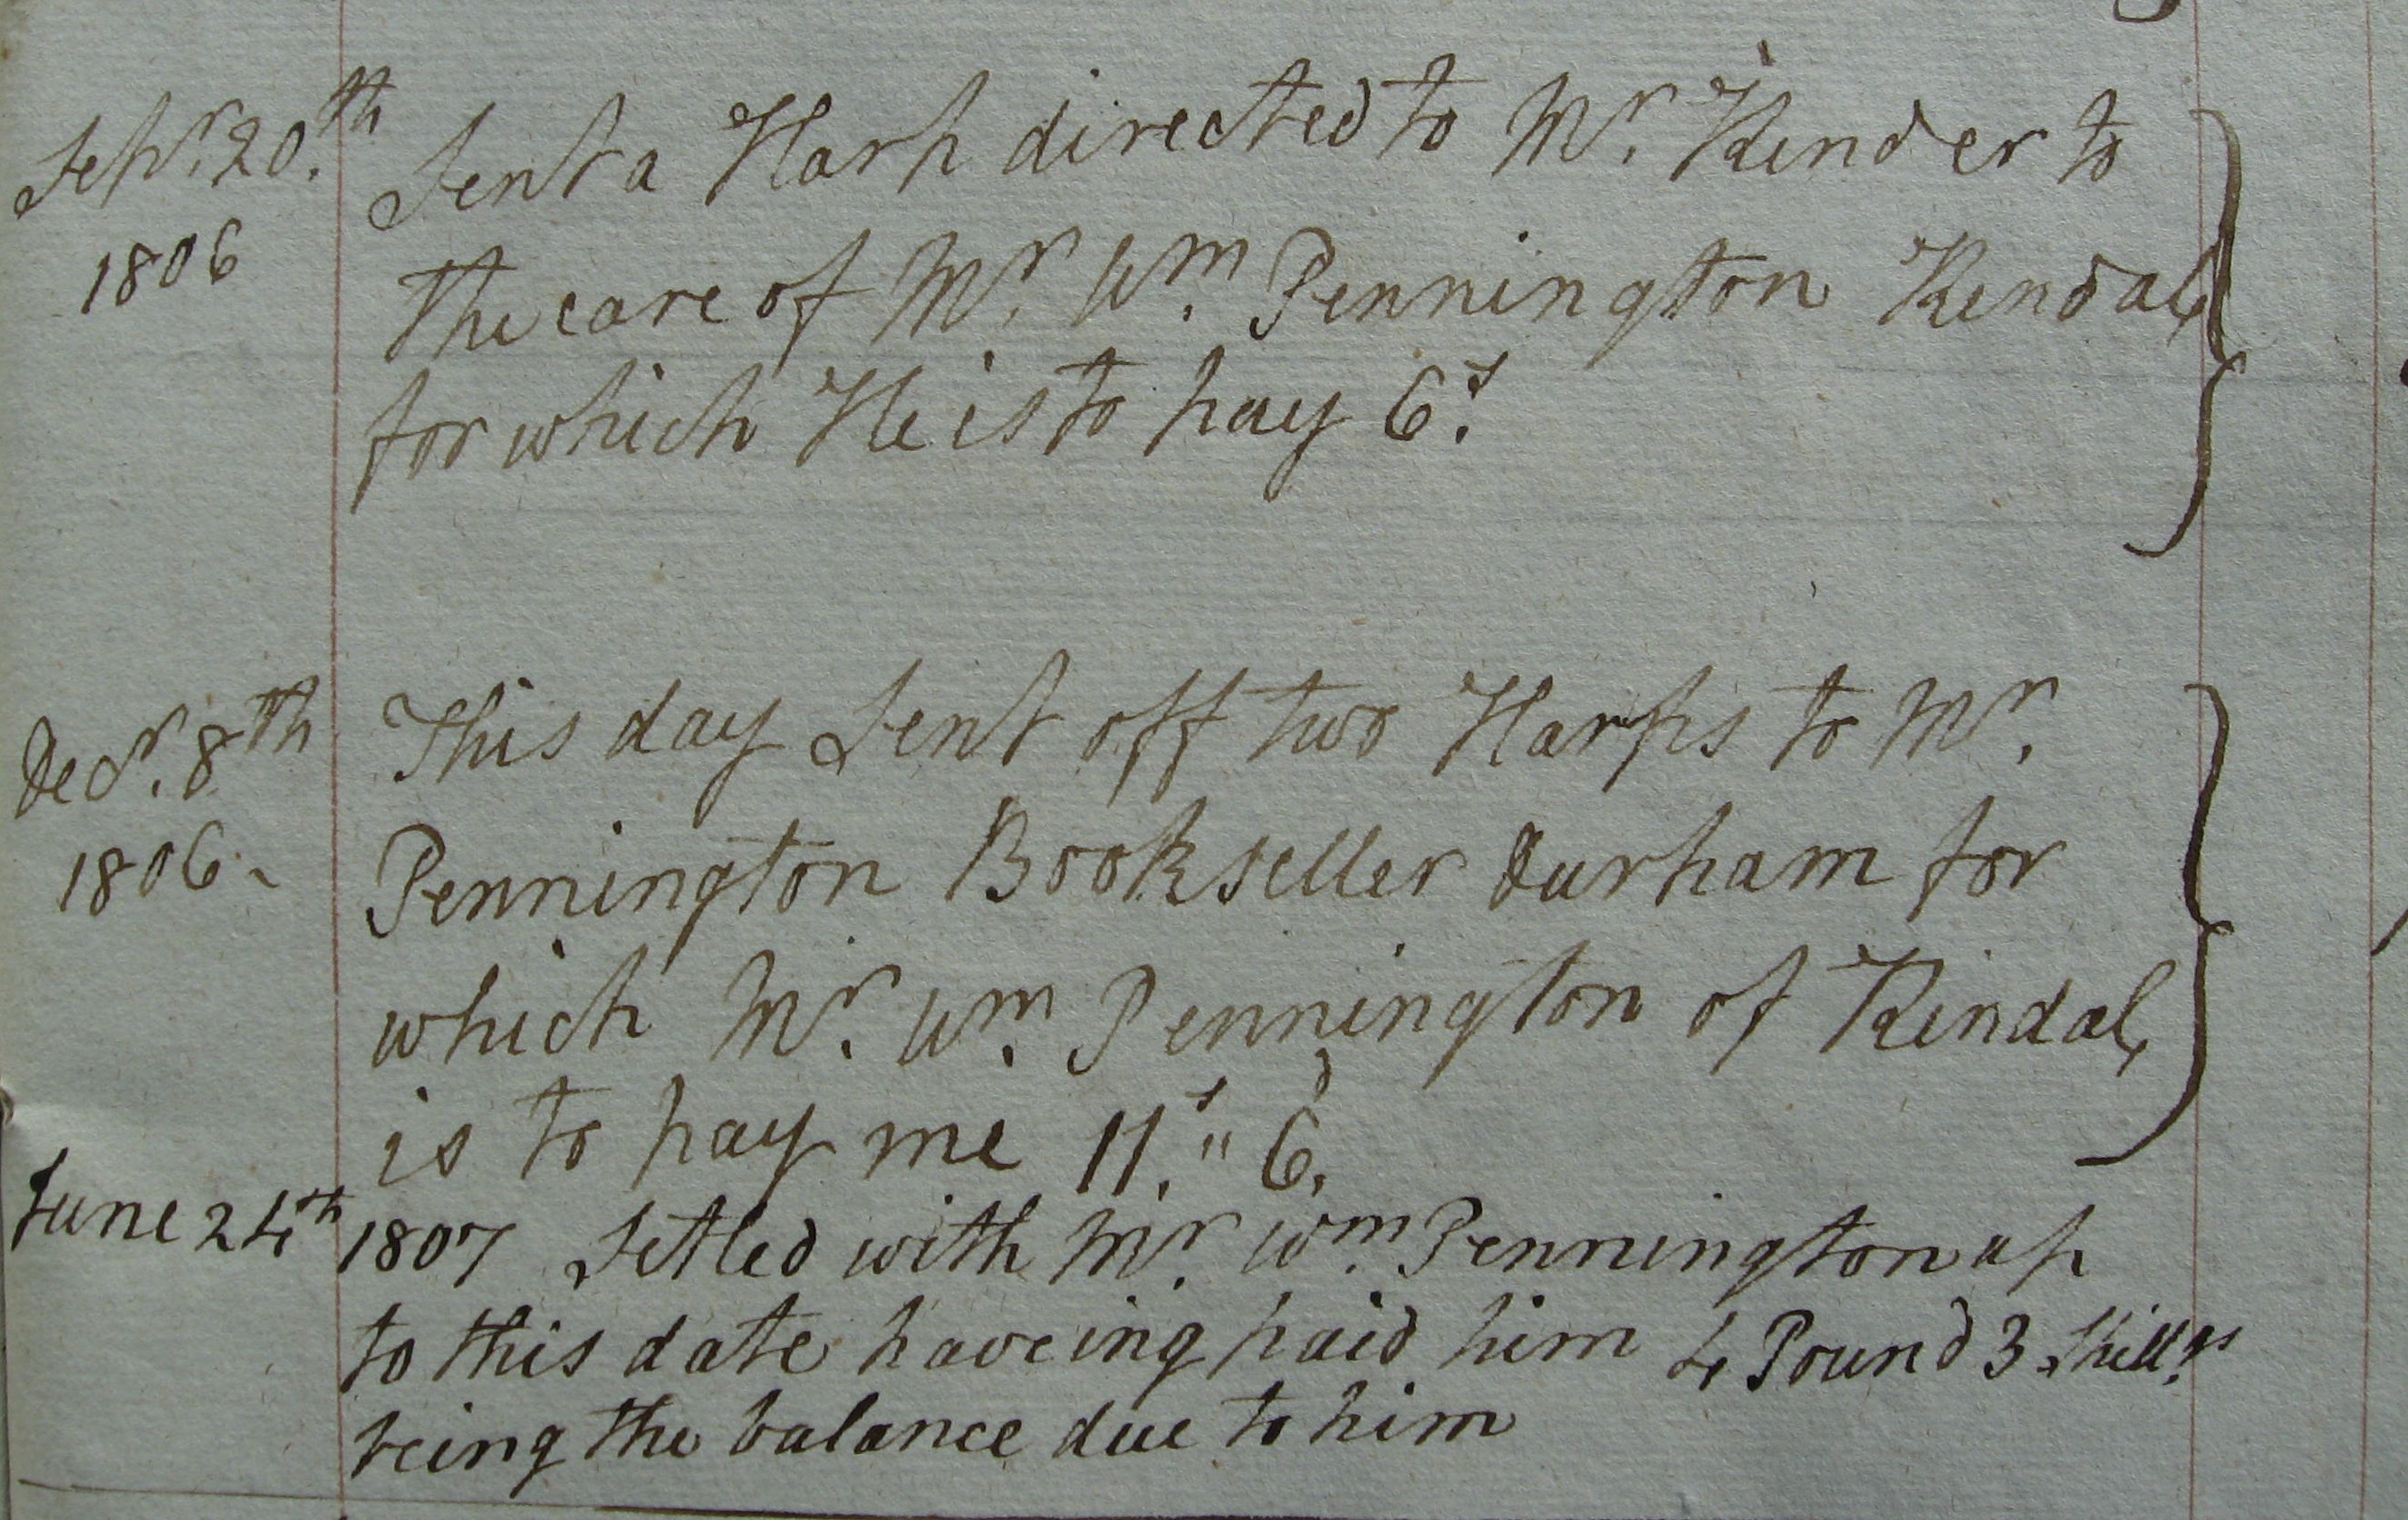 Sepr. 20th Sent a Harp directed to Mr. Kender to
1806 the care of Mr. Wm. Pennington Kendal,
for which He is to pay 6s.
Decr. 8th This day Sent off two Harps to Mr.
1806. Pennington Bookseller Durham for
which Mr. Wm. Pennington of Kendal,
is to pay me 11s. " 6d.
June 24th 1807 Setled with Mr. Wm. Pennington up
to this date haveing paid him 4 Pound 3 Shillgs.
being the balance due to him